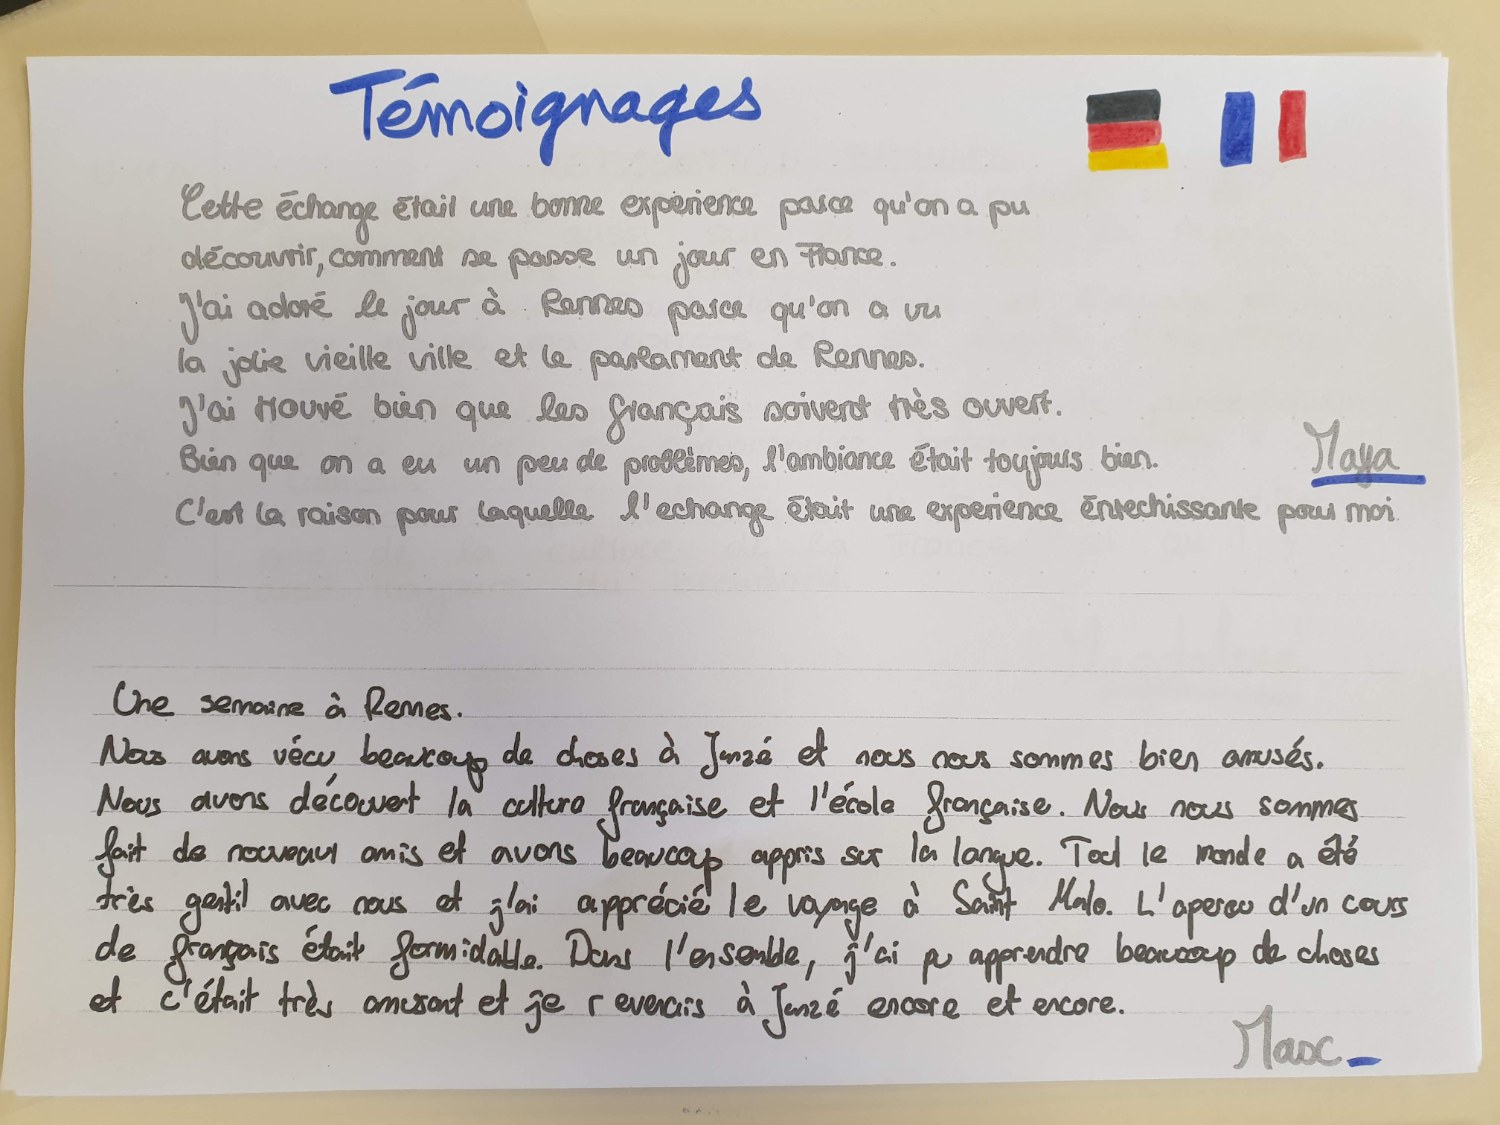 Témoignages
Cette échange était une bonne expérience parce qu'on a pu
découvrir, comment se passe un jour en France.
J'ai adoré le jour à Rennes parce qu'on a vu
la jolie vieille ville et le parlament de Rennes.
J'ai trouvé bien que les français soivent très ouvert.
Bien que on a eu un peu de problèmes, l'ambiance était toujours bien.
Maya
C'est la raison pour laquelle l'echange était une experience énrechissante pour moi.
Une semaine à Rennes.
Nous avons vécu beaucoup de choses à Janzé et nous nous sommes bien amusés.
Nous avons découvert la culture française et l'école française. Nous nous sommes
fait de nouveaux amis et avons beaucoup appris sur la langue. Tout le monde a été
très gentil avec nous et j'ai apprécié le voyage à Saint Malo. L'aperçu d'un cours
de français était formidable. Dans l'ensemble, j'ai pu apprendre beaucoup de choses
et c'était très amusant et je reverrais à Janzé encore et encore.